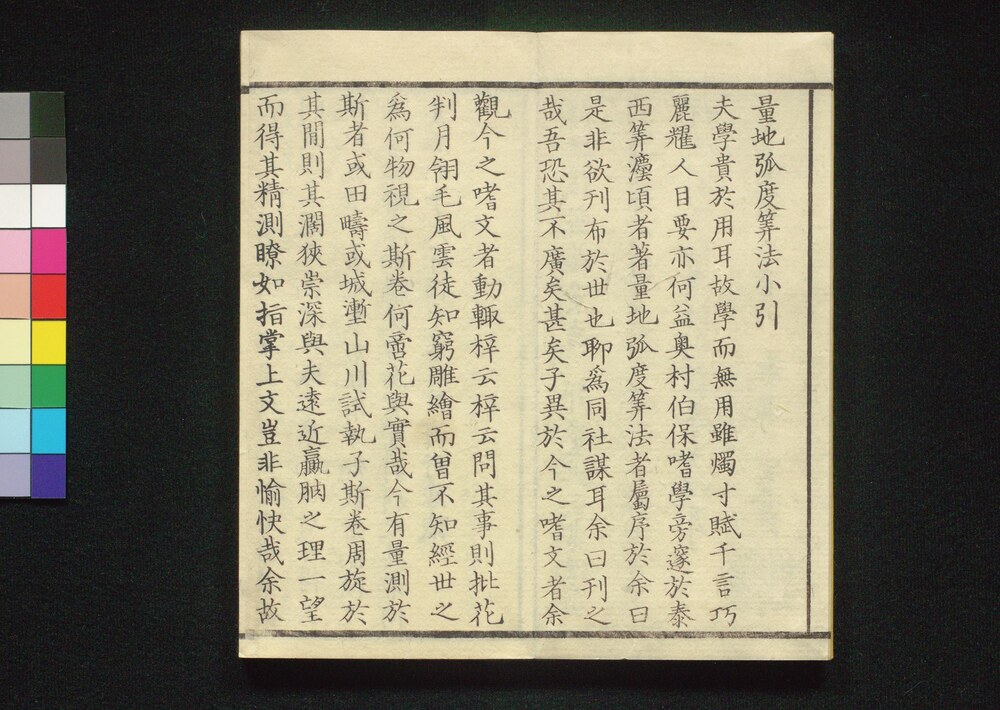 量地弧度筭法小引
夫學貴於用耳故學而無用雖燭寸賦千言巧
麗耀人目要亦何益奥村伯保嗜學旁邃於泰
西筭灋頃者著量地弧度筭法者屬序於余曰
是非欲刊布於世也聊為同社謀耳余曰刊之
哉吾恐其不廣矣甚矣子異於今之嗜文者余
觀今之嗜文者動輙梓云梓云問其事則批花
判月翎毛風雲徒知窮雕繪而曽不知經世之
為何物視之斯卷何啻花與實哉今有量測於
斯者或田疇或城壍山川試執子斯卷周旋於
其間則其濶狹崇深與夫遠近贏朒之理一望
而得其精測瞭如指掌上文豈非愉快哉余故